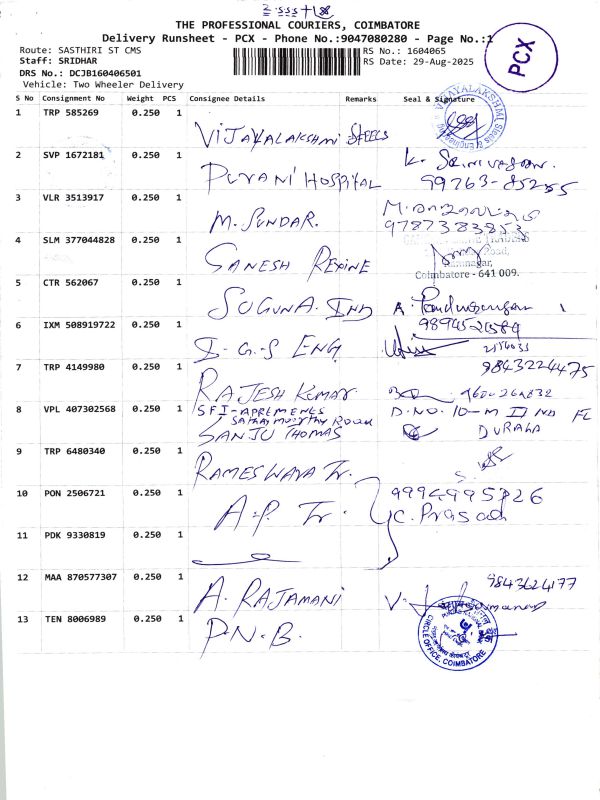 THE PROFESSIONAL COURIERS, COIMBATORE
Delivery Runsheet - PCX - Phone No.:9047080280 - Page No.:1
PCX
Route: SASTHIRI ST CMS RS No.: 1604065
Staff: SRIDHAR RS Date: 29-Aug-2025
DRS No.: DCJB160406501
Vehicle: Two Wheeler Delivery
S No Consignment No Weight PCS Consignee Details Remarks Seal & Signature
1 TRP 585269 0.250 1 VIJAYALAKSHMI STEELS
2 SVP 1672181 0.250 1 PURANI HOSPITAL K. SRINIVASAN.
99763-85255
3 VLR 3513917 0.250 1 M. SUNDAR.
9787383853
4 SLM 377044828 0.250 1 GANESH REXINE
Coimbatore - 641 009.
5 CTR 562067 0.250 1 SUGUNA. IND A. Pandurangan
9894521584
6 IXM 508919722 0.250 1 I-G-S ENG
7 TRP 4149980 0.250 1 RAJESH KUMAR
9843224475
8 VPL 407302568 0.250 1 SFI-APREMENTS
SANJU THOMAS
D.NO. 10-M II ND FL
9 TRP 6480340 0.250 1 RAMESWARA Tr.
10 PON 2506721 0.250 1 A.P. Tr. 9994995726
C. Prasad
11 PDK 9330819 0.250 1
12 MAA 870577307 0.250 1 A. RAJAMANI 9843624177
13 TEN 8006989 0.250 1 P.N.B.
CIRCLE OFFICE, COIMBATORE